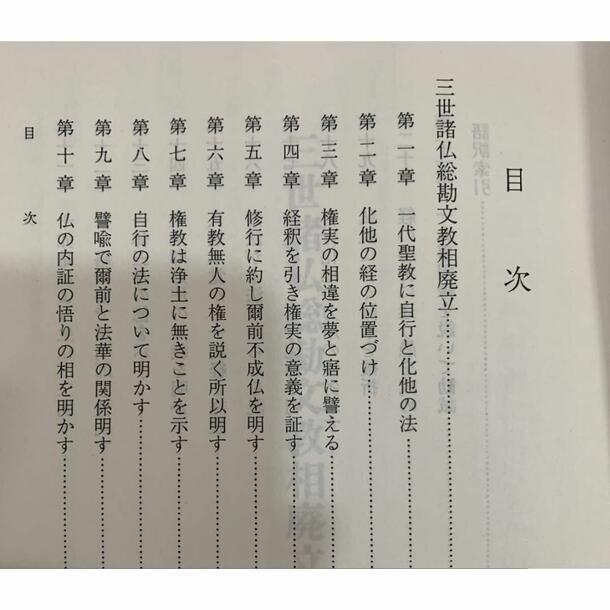 目次
三世諸仏総勘文教相廃立……
第一章 一代聖教に自行と化他の法……
第二章 化他の経の位置づけ……
第三章 権実の相違を夢と寤に譬える……
第四章 経釈を引き権実の意義を証す……
第五章 修行に約し爾前不成仏を明す……
第六章 有教無人の権を説く所以明す……
第七章 権教は浄土に無きことを示す……
第八章 自行の法について明かす……
第九章 譬喩で爾前と法華の関係明す……
第十章 仏の内証の悟りの相を明かす……
目次